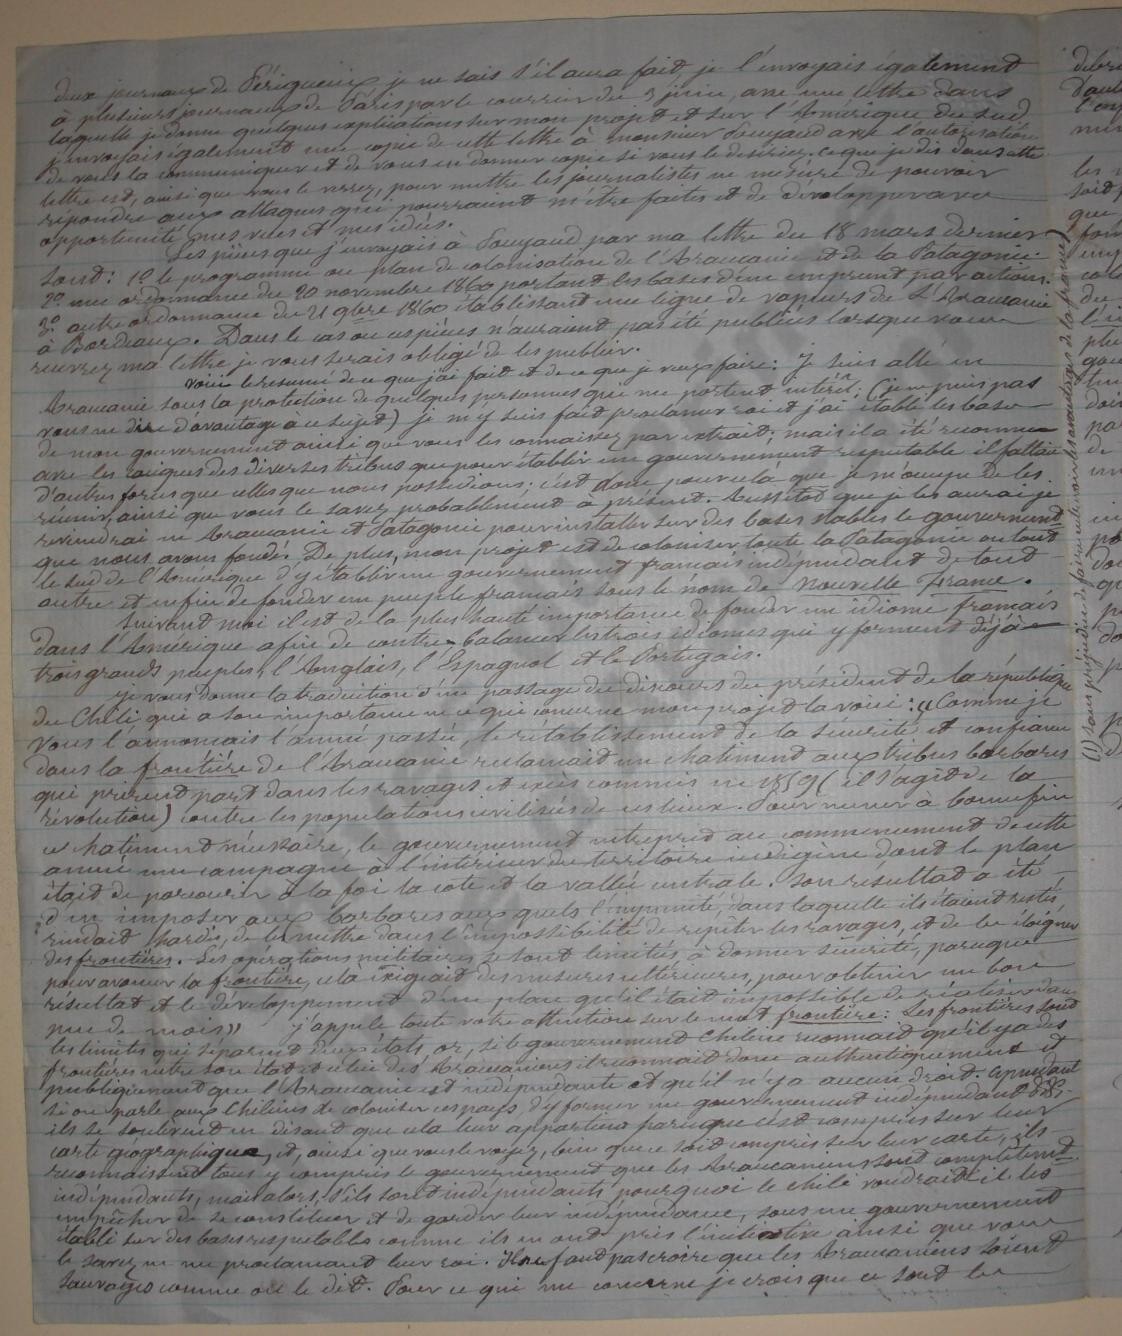 deux journaux de Périgueux je ne sais s'il aura fait, je l'envoyais également
à plusieurs journaux de Paris par le courrier du 3 juin, avec une lettre dans
laquelle je donne quelques explications sur mon projet et sur l'Amérique du sud,
j'envoyais également une copie de cette lettre à monsieur Souyaud avec l'autorisation
de vous la communiquer et de vous en donner copie si vous le desiriez. Ce que je dis dans cette
lettre est, ainsi que vous le verrez, pour mettre les journalistes en mesure de pouvoir
répondre aux attaques qui pourraient m'être faites et de développer avec
opportunité mes vues et mes idées.
Les pièces que j'envoyais à Souyaud par ma lettre du 18 mars dernier
sont: 1º le programme ou plan de colonisation de l'Araucanie et de la Patagonie.
2º une ordonnance du 20 novembre 1860 portant les bases d'un emprunt par actions.
3º autre ordonnance du 21 9bre 1860 établissant une ligne de vapeurs de l'Araucanie
à Bordeaux. Dans le cas ou ces pièces n'auraient pas été publiées lorsque vous
recevrez ma lettre je vous serais obligé de les publier.
voici le resumé de ce que j'ai fait et de ce que je veux faire: Je suis allé en
Araucanie sous la protection de quelques personnes qui me portent intérêt; (je ne puis pas
vous en dire d'avantage à ce sujet) je m'y suis fait proclamer roi et j'ai établi les bases
de mon gouvernement ainsi que vous les connaissez par extrait; mais il a été reconnu
avec les caciques des diverses tribus que pour établir un gouvernement respectable il fallait
d'autres forces que celles que nous possedions; c'est donc pour cela que je m'occupe de les
réunir, ainsi que vous le savez probablement à présent. Aussitot que je les aurai je
reviendrai en Araucanie et Patagonie pour installer sur des bases stables le gouvernement
que nous avons fondé. De plus, mon projet est de coloniser toute la Patagonie ou tout
le sud de l'Amérique d'y établir un gouvernement français indépendant de tout
autre et enfin de fonder un peuple français sous le nom de Nouvelle France.
Suivant moi il est de la plus haute importance de fonder un idiome français
dans l'Amérique afin de contre-balancer les trois idiomes qui y forment déjà
trois grands peuples, l'Anglais, l'Espagnol et le Portugais.
Je vous donne la traduction d'un passage du discours du président de la république
du Chili qui a son importance en ce qui concerne mon projet la voici: « Comme je
vous l'annonçais l'année passée le rétablissement de la sécurité et confiance
dans la frontière de l'Araucanie reclamait un chatiment aux tribus barbares
qui prirent part dans les ravages et excès commis en 1859 (il s'agit de la
révolution) contre les populations civilisées de ces lieux. Pour mener à bonne fin
ce chatiment nécessaire, le gouvernement entreprit au commencement de cette
année une campagne à l'intérieur du territoire indigène dont le plan
était de parcourir à la foi la cote et la vallée centrale. Son résultat a été
d'en imposer aux barbares aux quels l'impunité, dans laquelle ils étaient restés,
rendait hardis, de les mettre dans l'impossibilité de répéter les ravages, et de les éloigner
des frontières. Les opérations militaires se sont limitées à donner sécurité, parceque
pour avancer la frontière, cela exigeait des mesures ultérieures, pour obtenir un bon
résultat et le développement d'un plan qu'il était impossible de réaliser dans
peu de mois» j'appele toute votre attention sur le mot frontière: Les frontières sont
les limites qui séparent deux états, or, si le gouvernement Chilien reconnait qu'il y a des
frontières entre son état et celui des Araucaniens il reconnait donc authentiquement et
publiquement que l'Araucanie est indépendante et qu'il n'y a aucun droit. Cependant
si on parle aux Chiliens de coloniser ces pays d'y former un gouvernement indépendant
ils se soulèvent en disant que cela leur appartient parceque c'est compris sur leur
carte géographique, et, ainsi que vous le voyez, bien que ce soit compris sur leur carte, ils
reconnaissent tous y compris le gouvernement que les Araucaniens sont complètement
indépendants, mais alors, s'ils sont indépendants pourquoi le chili voudrait-il les
empêcher de se constituer et de garder leur indépendance, sous un gouvernement
établi sur des bases respectables comme ils en ont pris l'initiative ainsi que vous
le savez en me proclamant leur roi. Il ne faut pas croire que les Araucaniens soient
sauvages comme on le dit. Pour ce qui me concerne je crois que ce sont les
(1) sans préjudice de faire entrer les avantages de la france)